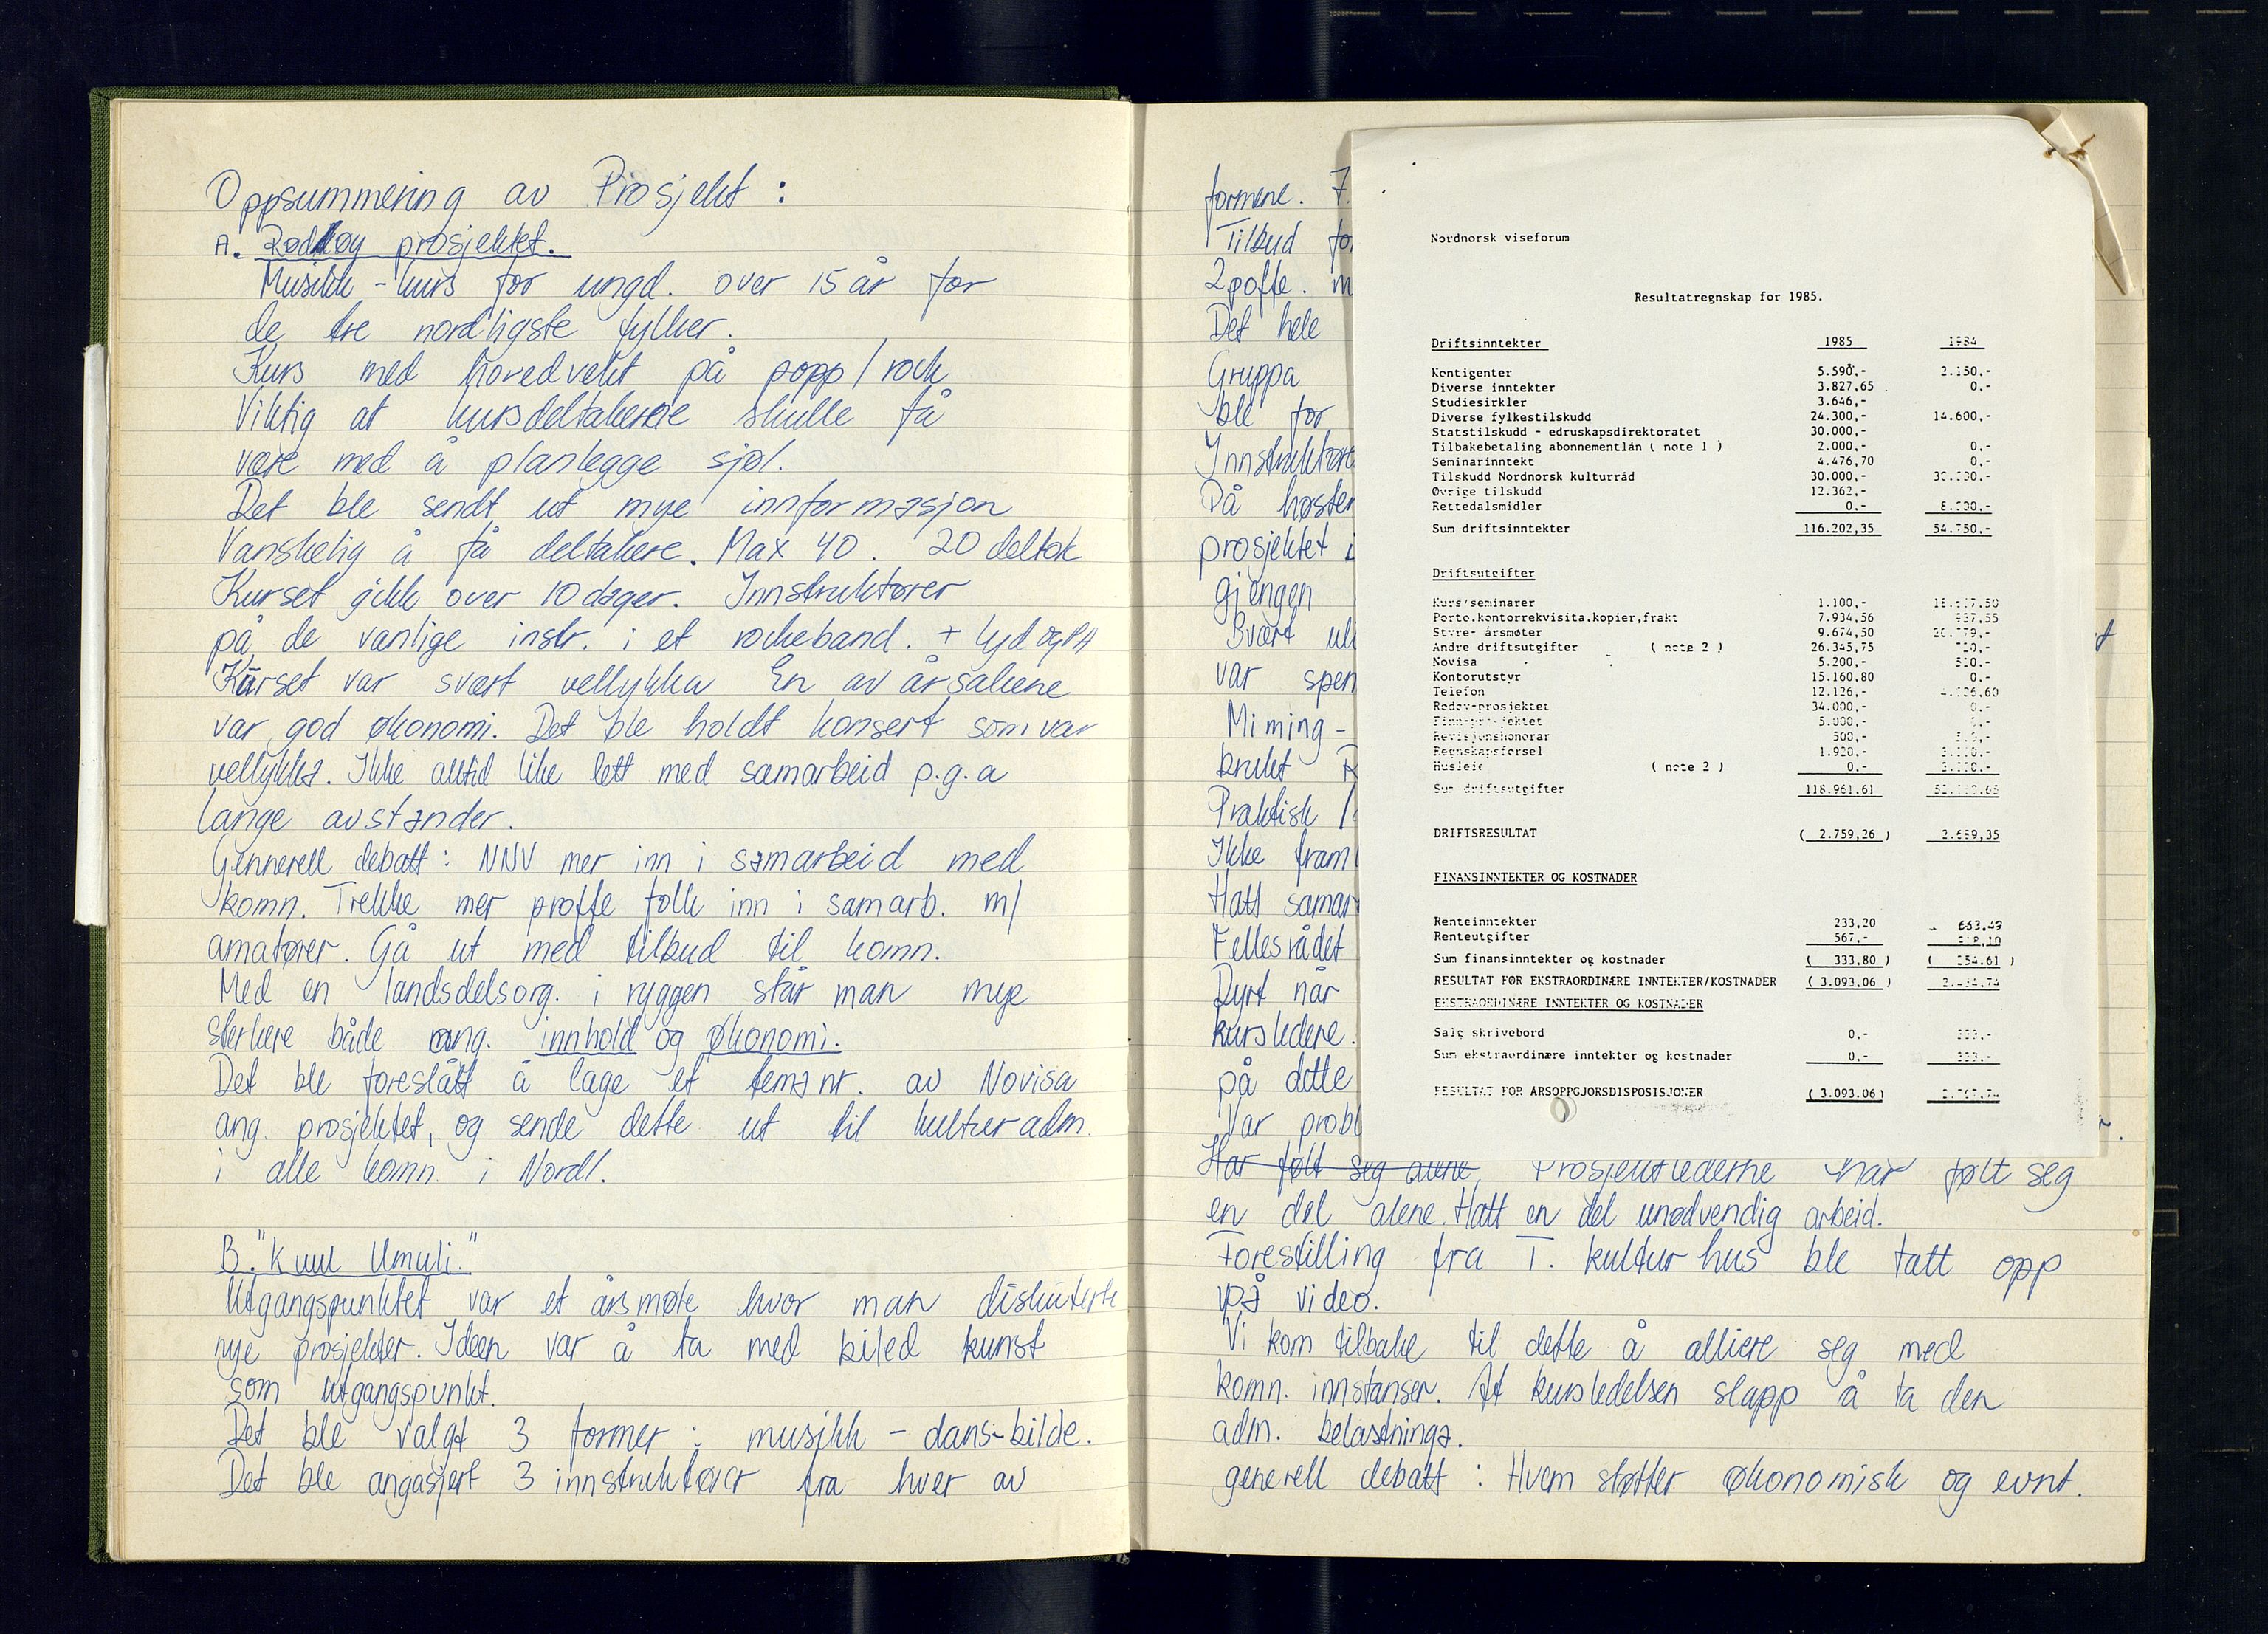 Oppsummering av Prosjekt :
A. prosjektet.
Musikk - kurs for ungd. over 15 år for
de tre nordligste fylker.
Kurs med hovedvekt på popp / rock
Viktig at kursdeltakerere skulle få
være med å planlegge sjøl.
Det ble sendt ut mye innformasjon
Vanskelig å få deltakere. Max 40. 20 deltok
Kurset gikk over 10 dager. Innstruktører
på de vanlige instr. i et rockeband. + lyd og PA
Kurset var svært vellykka En av årsakene
var god økonomi. Det ble holdt konsert som var
vellykka. Ikke alltid like lett med samarbeid p.g.a
lange avstander.
Gennerell debatt : NNV mer inn i samarbeid med
komn. Trekke mer proffe folk inn i samarb. m/
amatører. Gå ut med tilbud til komn.
Med en landsdelsorg. i ryggen står man mye
sterkere både ang. innhold og økonomi.
Det ble foreslått å lage et tema nr. av Novisa
ang. prosjektet, og sende dette ut til kulturadm.
i alle komn. i Nordl.
B. "Kuul Umuli."
Utgangspunktet var et årsmøte hvor man diskuterte
nye prosjekter. Ideen var å ta med billed kunst
som utgangspunkt.
Det ble valgt 3 former : musikk - dans - bilde.
Det ble angasjert 3 innstruktører fra hver av
formene. 7.
Tilbud fo
2 poffe. m
Det hele
Gruppa
ble for
Innstruktøre
På høsten
prosjektet i
gjengen
Svært ul
var spen
Miming -
brukt
Praktisk /
Ikke fram
Hatt samar
Fellesrådet
Dyrt når
kursledere.
på dette
Var probl
Har følt seg alene. Prosjektlederne har følt seg
en del alene. Hatt en del unødvendig arbeid.
Forestilling fra T. kulturhus ble tatt opp
på video.
Vi kom tilbake til dette å alliere seg med
komn. innstanser. At kursledelsen slapp å ta den
adm. belastninga.
generell debatt : Hvem støtter økonomisk og evnt.
Nordnorsk viseforum
Resultatregnskap for 1985.
Driftsinntekter 1985 1984
Kontigenter 5.590,- 2.150,-
Diverse inntekter 3.827,65 0,-
Studiesirkler 3.646,-
Diverse fylkestilskudd 24.300,- 14.600,-
Statstilskudd - edruskapsdirektoratet 30.000,-
Tilbakebetaling abonnementlån ( note 1 ) 2.000,- 0,-
Seminarinntekt 4.476,70 0,-
Tilskudd Nordnorsk kulturråd 30.000,-
Øvrige tilskudd 12.362,-
Rettedalsmidler 0,-
Sum driftsinntekter 116.202,35 54.750,-
Driftsutgifter
Kurs/seminarer 1.100,-
Porto,kontorrekvisita,kopier,frakt 7.934,56
Styre- årsmøter 9.674,50
Andre driftsutgifter ( note 2 ) 26.345,75
Novisa 5.200,-
Kontorutstyr 15.160,80 0,-
Telefon 12.126,-
Rodøy-prosjektet 34.000,- 0,-
Finn-prosjektet 5.000,-
Revisjonshonorar 500,-
Regnskapsførsel 1.920,-
Husleie ( note 2 ) 0,-
Sum driftsutgifter 118.961,61
DRIFTSRESULTAT ( 2.759,26 )
FINANSINNTEKTER OG KOSTNADER
Renteinntekter 233,20 653,49
Renteutgifter 567,-
Sum finansinntekter og kostnader ( 333,80 )
RESULTAT FØR EKSTRAORDINÆRE INNTEKTER/KOSTNADER ( 3.093,06 )
EKSTRAORDINÆRE INNTEKTER OG KOSTNADER
Salg skrivebord 0,- 333,-
Sum ekstraordinære inntekter og kostnader 0,- 333,-
RESULTAT FØR ÅRSOPPGJØRSDISPOSISJONER ( 3.093.06)